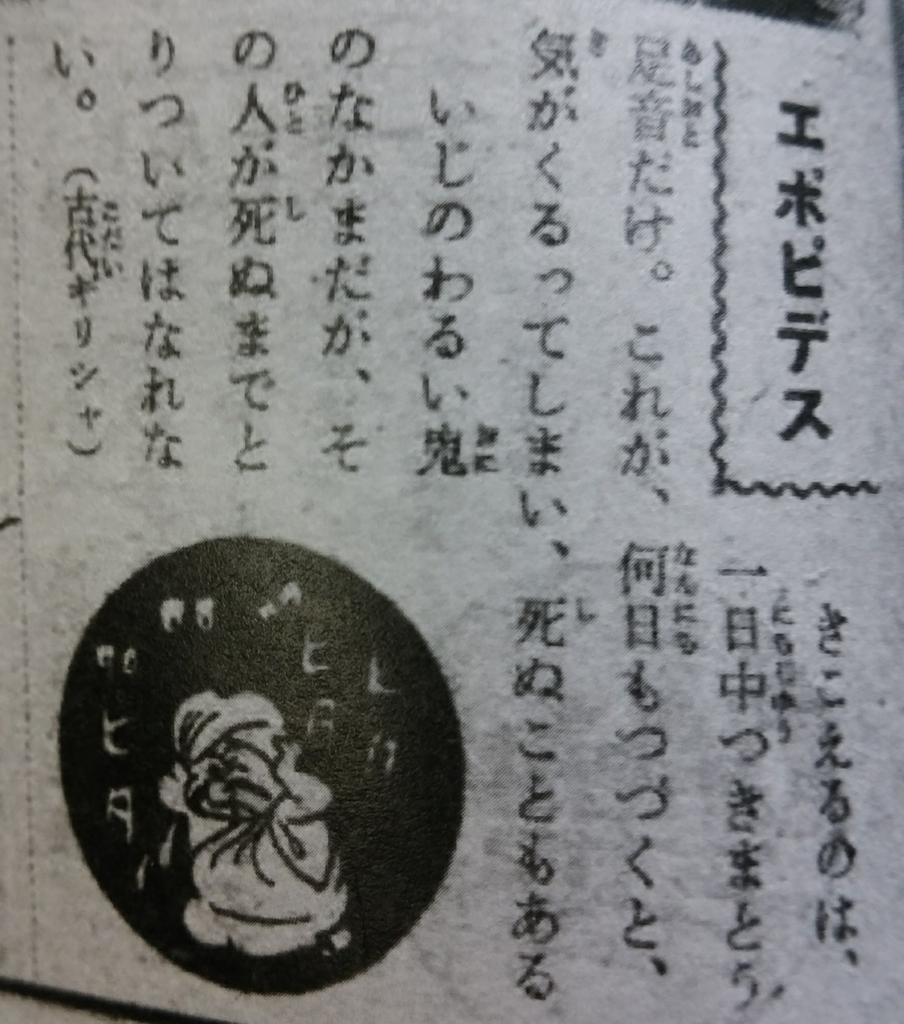 エボピデス
きこえるのは、
一日中つきまとう
足音だけ。これが、何日もつづくと、
気がくるってしまい、死ぬこともある
いじのわるい鬼
のなかまだが、そ
の人が死ぬまでと
りついてはなれな
い。(古代ギリシャ)
ヒタ
ヒタ